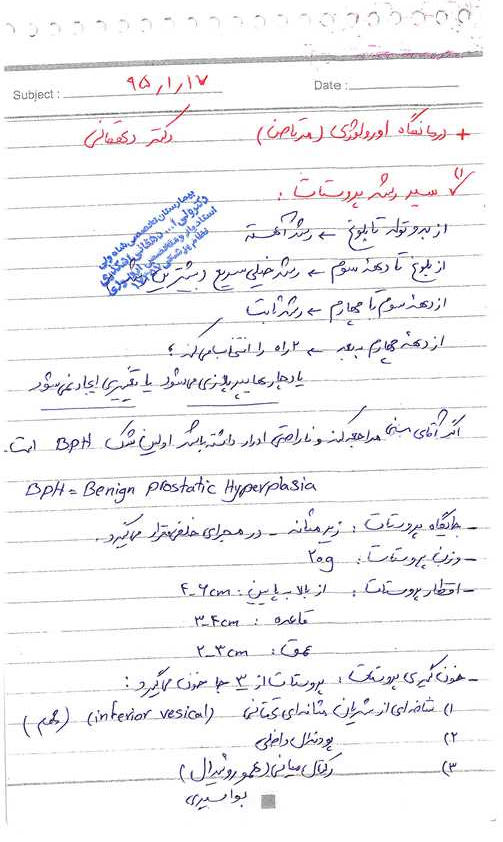 Subject : ۹۵,۱,۱۷ Date :
+ درمانگاه اورولوژی ( دکتر دهقانی
۱) سیر رشد پروستات :
از بدو تولد تا بلوغ ← رشد آهسته
از بلوغ تا دهه سوم ← رشد خیلی سریع و بیشترین
از دهه سوم تا چهارم ← رشد ثابت
از دهه چهارم به بعد ← ۲ راه را انتخاب میکند ؛
یا دچار هایپرپلازی می شود یا تغییری ایجاد نمی شود
اگر آقای مسنی مراجعه کند و ناراحتی ادرار داشته باشد اولین شک BPH است.
BPH = Benign Prostatic Hyperplasia
- جایگاه پروستات : زیر مثانه - در مجرای خلفی قرار میگیرد.
- وزن پروستات : ۲۰g
- اقطار پروستات : از بالا به پایین : ۴-۶cm
قاعده : ۳-۴cm
عمق : ۲-۳cm
- خون گیری پروستات : پروستات از ۳ جا خون میگیرد :
۱) شاخه ای از شریان مثانه ای تحتانی (inferior vesical) (مهم)
۲) پودندال داخلی
۳) رکتال میانی (هموروئیدال)
بواسیری